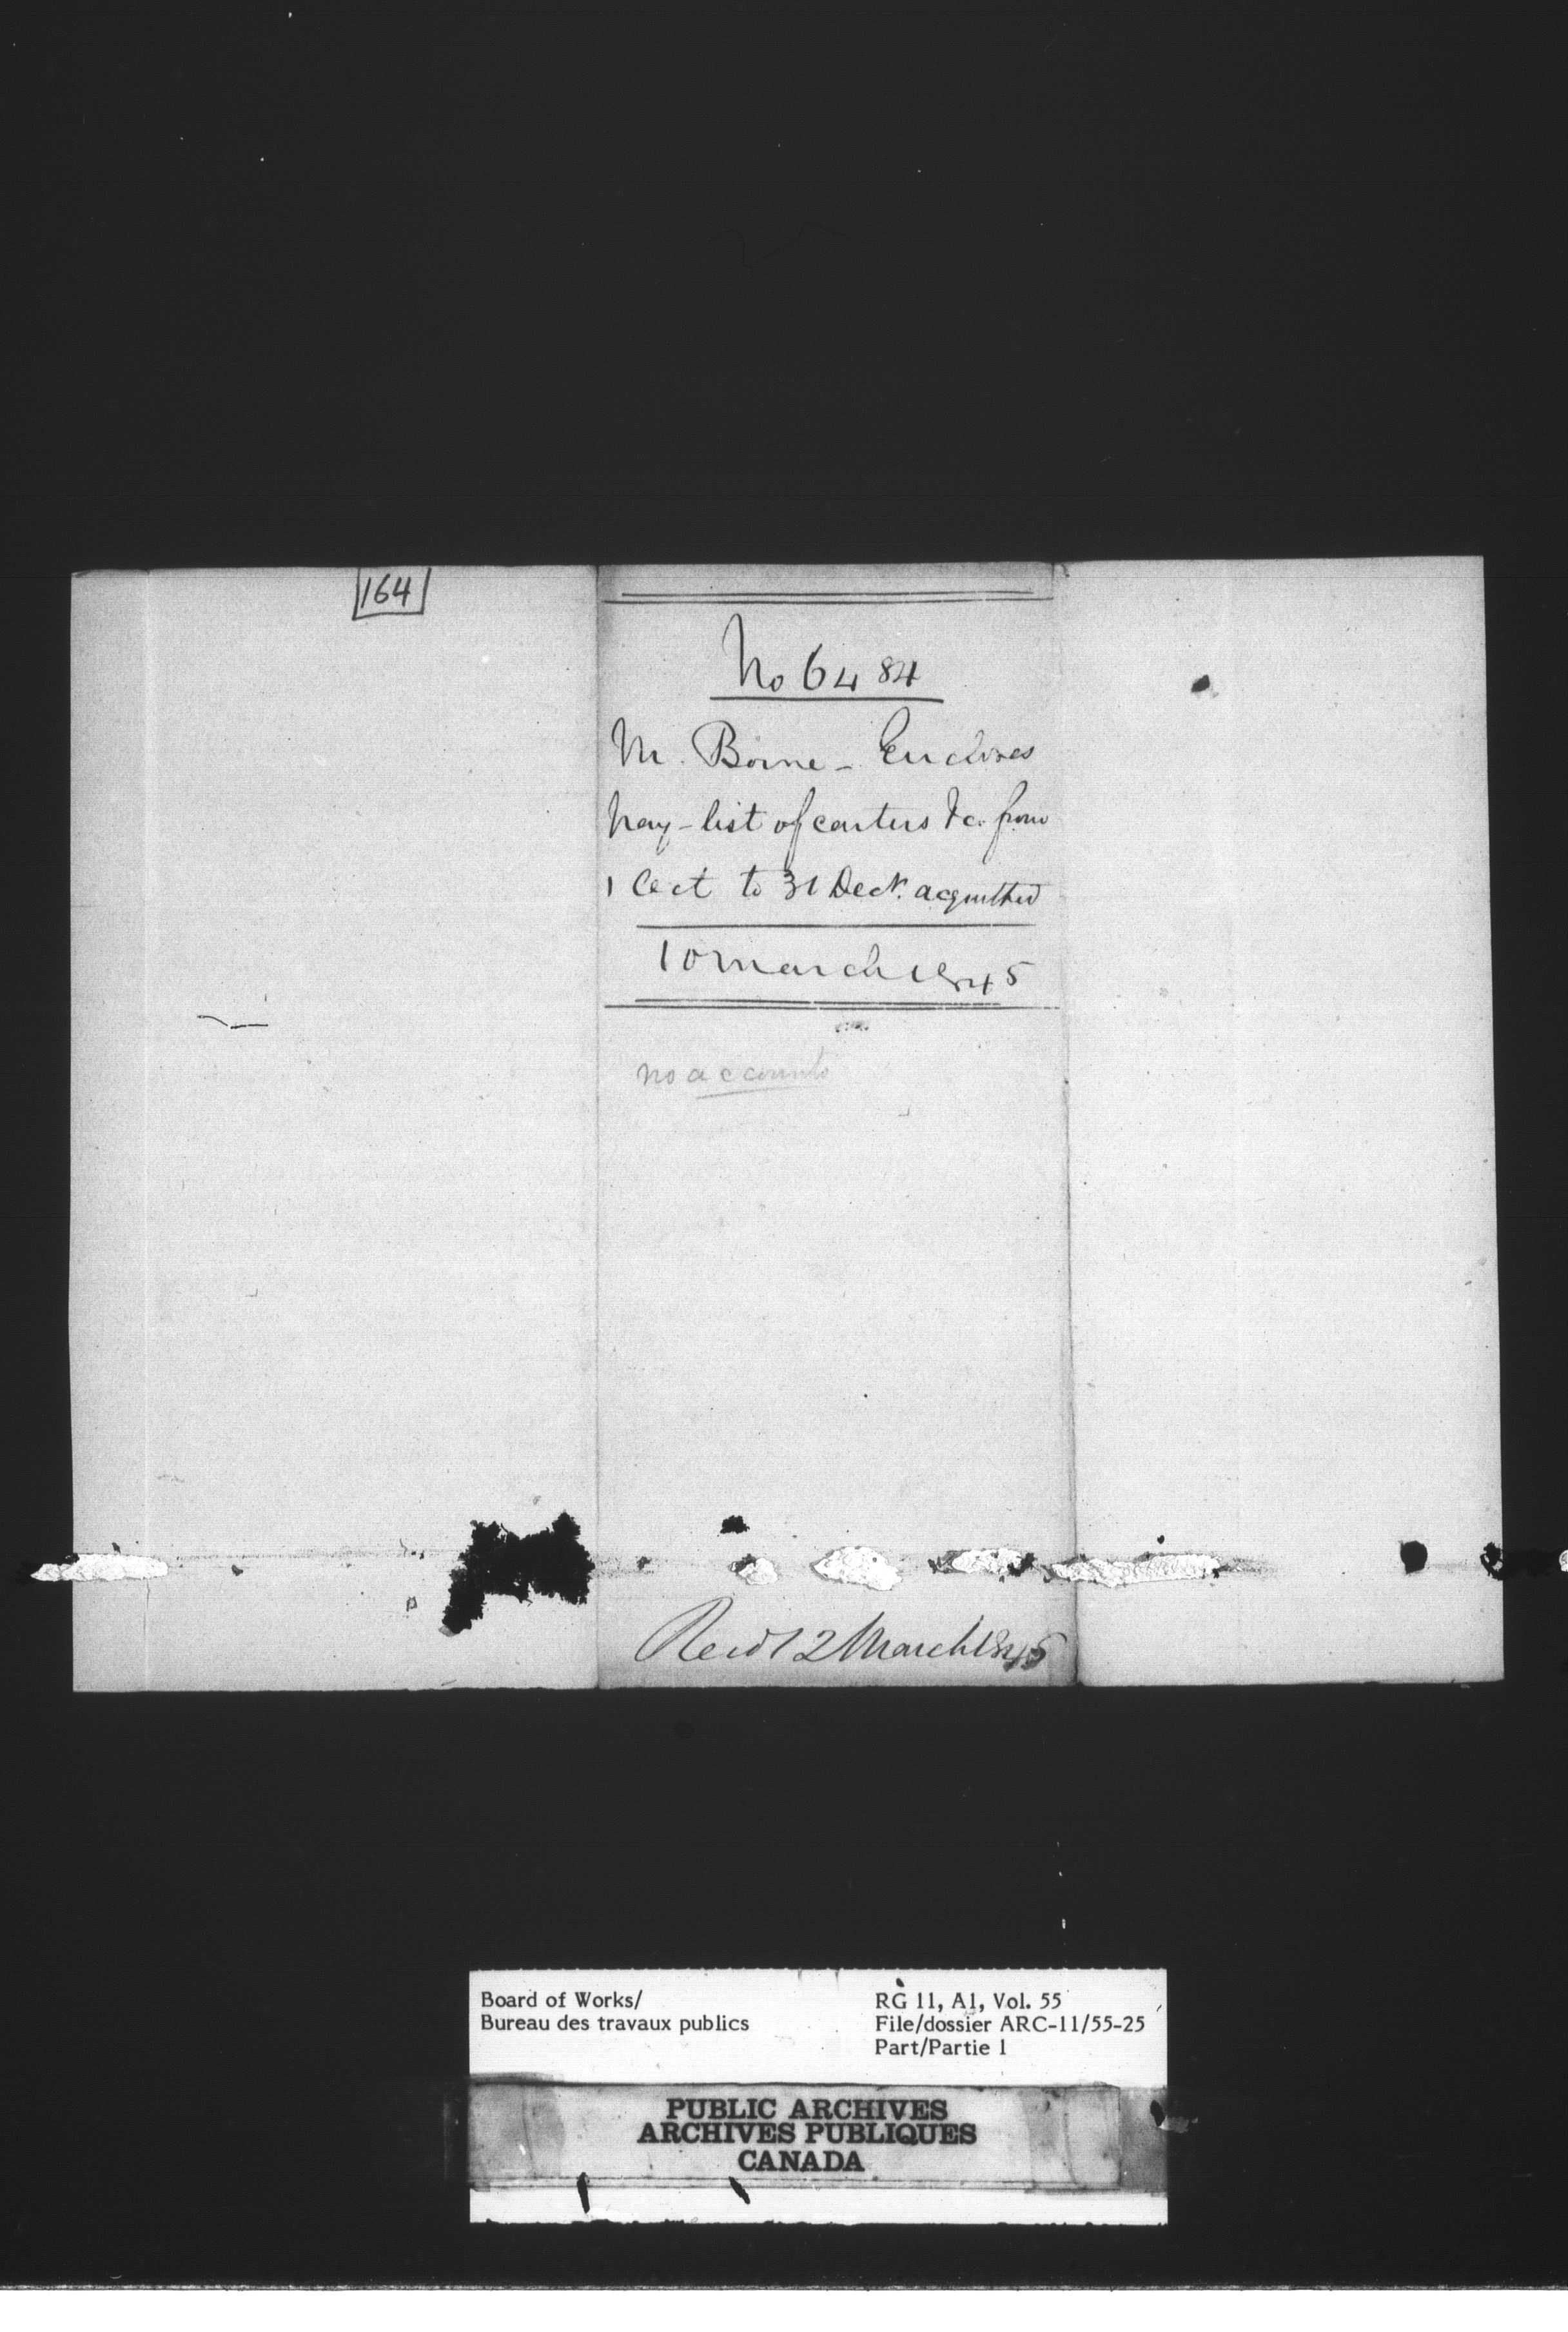 164
No 6484
M. Borne - Encloses
pay-list of carters &c. from
1 Oct to 31 Decr. acquitted
10 March 1845
no accounts
Recd 12 March 1845
Board of Works/
Bureau des travaux publics
RG 11, A1, Vol. 55
File/dossier ARC-11/55-25
Part/Partie 1
PUBLIC ARCHIVES
ARCHIVES PUBLIQUES
CANADA